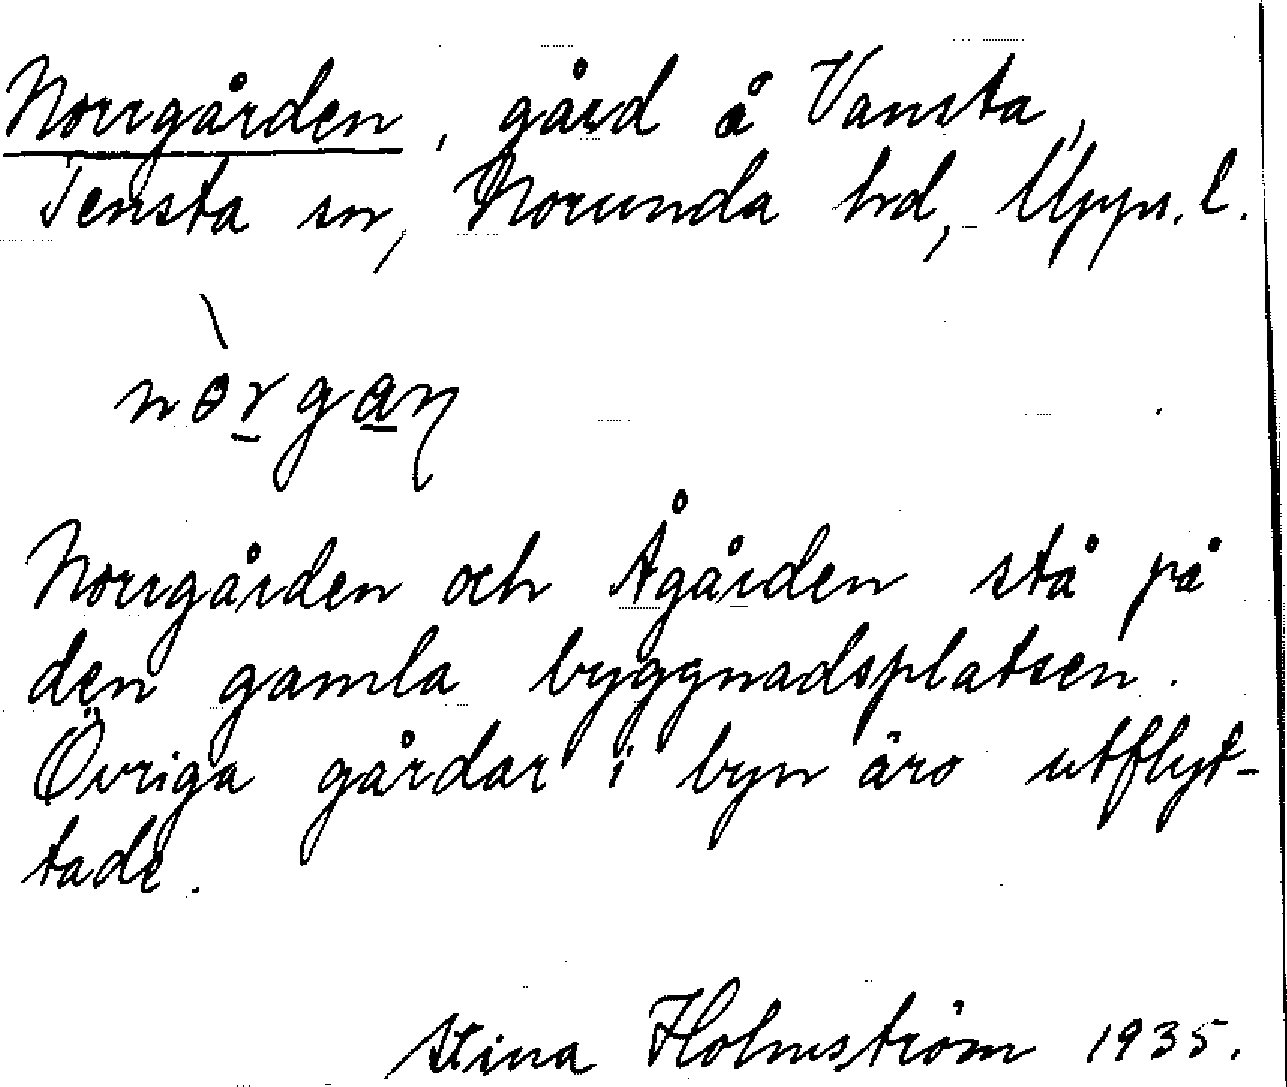 Norrgården, gård å Vansta,
Tensta sn, Norunda hd, Upps. l.
nɵ̀rgaɳ
Norrgården och Ågården stå på
den gamla byggnadsplatsen.
Övriga gårdar i byn äro utflyt-
tade.
Stina Holmström 1935.